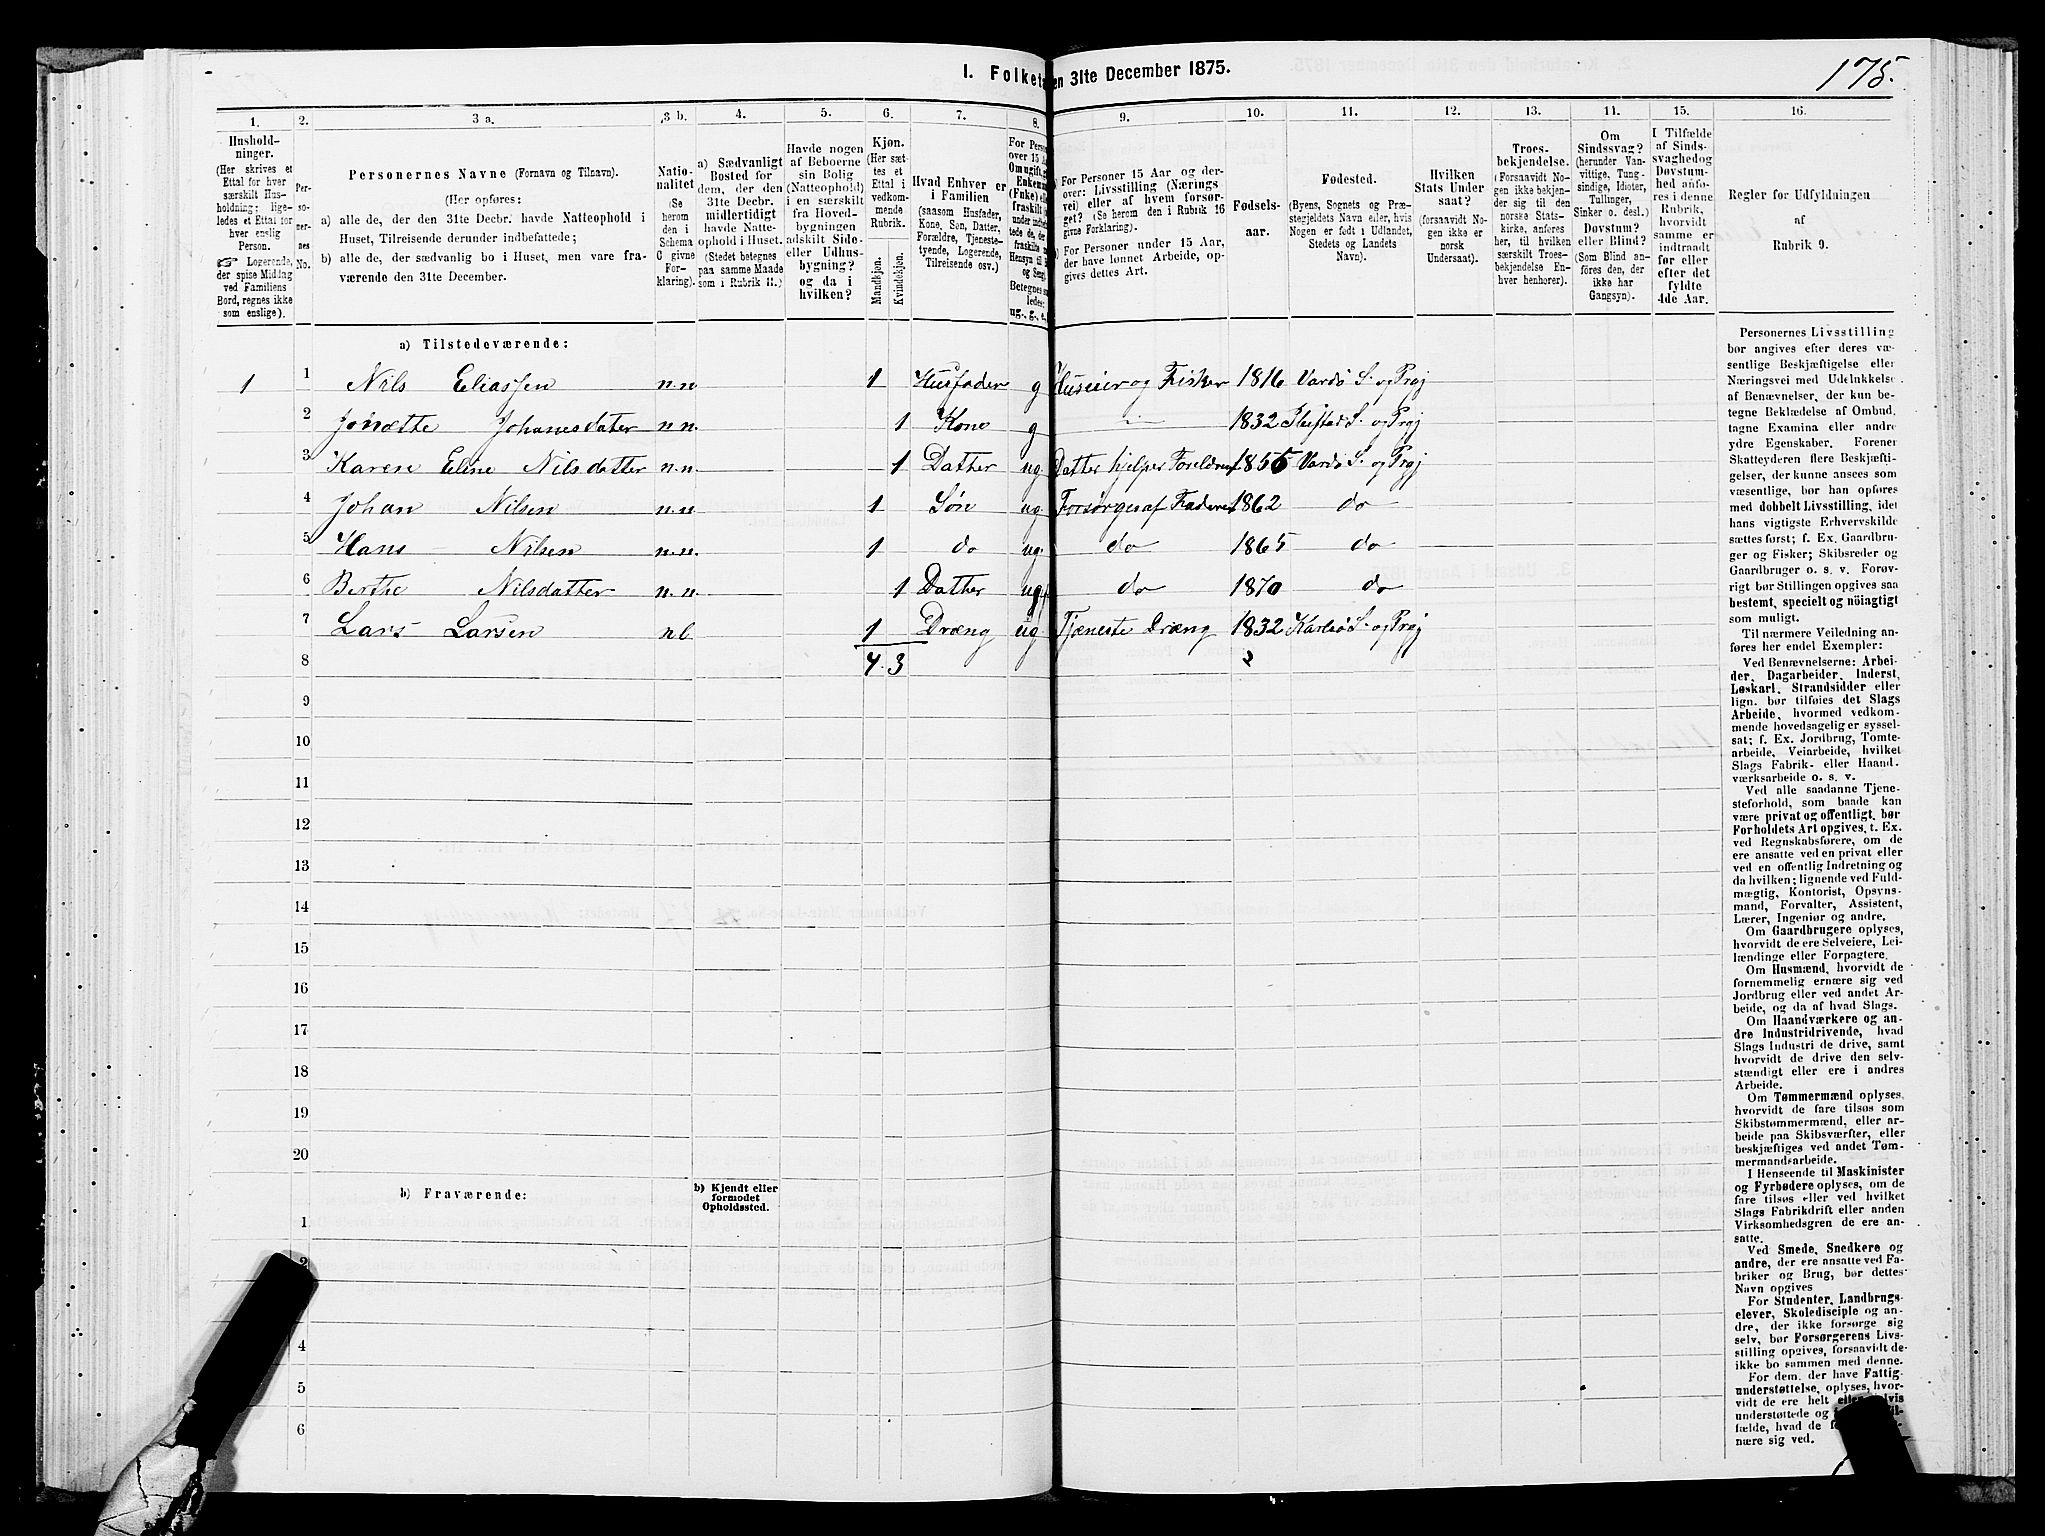 175.
I. Folket en 31te December 1875.
1.
Hushold-
ninger.
(Her skrives et
Ettal for hver
særskilt Hus-
holdning; lige-
ledes et Ettal for
hver enslig
Person.
☞ Logerende,
der spise Middag
ved Familiens
Bord, regnes ikke
som enslige).
2.
Per-
so-
ner-
nes
No.
3 a.
Personernes Navne (Fornavn og Tilnavn).
(Her opføres:
a) alle de, der den 31te Decbr. havde Natteophold i
Huset, Tilreisende derunder indbefattede;
b) alle de, der sædvanlig bo i Huset, men vare fra-
værende den 31te December.
3 b.
Natio-
nalitet
(Se
herom
den i
Schema
C givne
For-
klaring).
4.
a) Sædvanligt
Bosted for
dem, der den
31te Decbr.
midlertidigt
havde Natte-
ophold i Huset.
(Stedet betegnes
paa samme Maade
som i Rubrik 11.)
5.
Havde nogen
af Beboerne
sin Bolig
(Natteophold)
i en særskilt
fra Hoved-
bygningen
adskilt Side-
eller Udhus-
bygning?
og da i
hvilken?
6.
Kjøn.
(Her sæt-
tes et
Ettal i
vedkom-
mende
Rubrik.
Mandkjøn.
Kvindekjøn.
7.
Hvad Enhver er
i Familien
(saasom Husfader,
Kone, Søn, Datter,
Forældre, Tjeneste-
tyende, Logerende,
Tilreisende osv.)
8.
For Person
over 15 Aa
Om ugift, g
Enkem
(Enke) ell
fraskilt
Hensyn til
og Seng.
Betegnes
ledes:
ug., g., e.,
9.
For Personer 15 Aar og der-
over: Livsstilling (Nærings
vei) eller af hvem forsør-
get? (Se herom den i Rubrik 16
givne Forklaring).
For Personer under 15 Aar,
der have lønnet Arbeide, op-
gives dettes Art.
10.
Fødsels-
aar.
11.
Fødested.
(Byens, Sognets og Præ-
stegjeldets Navn eller, hvis
Nogen er født i Udlandet,
Stedets og Landets
Navn).
12.
Hvilken
Stats Under
saat?
(forsaavidt No-
gen ikke er
norsk
Undersaat).
13.
Troes-
bekjendelse.
(Forsaavidt No-
gen ikke bekjen-
der sig til den
norske Stats-
kirke, anføres
her, til hvilken
særskilt Troes-
bekjendelse En-
hver henhører).
11.
Om
Sindssvag?
(herunder Van-
vittige, Tung-
sindige, Idioter,
Tullinger,
Sinker o. desl.)?
Døvstum?
eller Blind?
(Som Blind an-
føres den, der
ikke har
Gangsyn).
15.
I Tilfælde
af Sinds-
svaghed og
Døvstum-
hed anfø-
res i denne
Rubrik,
hvorvidt
samme er
indtraadt
før eller
efter det
fyldte
4de Aar.
16.
Regler for Udfyldningen
af
Rubrik 9.
a) Tilstedeværende:
1 1 Nils Eliassen n.n 1 Husfader g Huseier og Fisker 1816 Vardö S. og Prgj
2 Johanesdater n.n. 1 Kone g 1832 S. og Prgj
3 Karen Eline Nilsdatter n.n. 1 Dather ug Datter hjelper Foreldre 1855 Vardö S. og Prgj
4 Johan Nilsen n.n. 1 Søn ug Forsörges af Faderen 1862 do
5 Hans Nilsen n.n. 1 do ug. do 1865 do
6 Berthe Nilsdatter n.n. 1 Dather ug. do 1870 do
7 Lars Larsen n l 1 Dræng ug Tjæneste Dræng 1832 Karlsö S. og Prgj
8 4. 3 2
9
10
11
12
13
14
15
16
17
18
19
20
b) Fraværende:
b) Kjendt eller
formodet
Opholdssted.
1
2
4
5
6
Personernes Livsstilling
bør angives efter deres væ-
sentlige Beskjæftigelse eller
Næringsvei med Udelukkelse
af Benævnelser, der kun be-
tegne Beklædelse af Ombud,
tagne Examina eller andre
ydre Egenskaber. Forener
Skatteyderen flere Beskjæfti-
gelser, der kunne ansees som
væsentlige, bør han opføres
med dobbelt Livsstilling, idet
hans vigtigste Erhvervskilde
sættes først; f. Ex. Gaardbru-
ger og Fisker; Skibsreder og
Gaardbruger o. s. v. Forøv-
rigt bør Stillingen opgives saa
bestemt, specielt og nöiagtigt
som muligt.
Til nærmere Veiledning an-
føres her endel Exempler:
Ved Benævnelserne: Arbei-
der, Dagarbeider, Inderst,
Løskarl, Strandsidder eller
lign. bør tilføies det Slags
Arbeide, hvormed vedkom-
mende hovedsagelig er syssel-
sat; f. Ex. Jordbrug, Tomte-
arbeide, Veiarbeide, hvilket
Slags Fabrik- eller Haand-
værksarbeide o. s. v.
Ved alle saadanne Tjene-
steforhold, som baade kan
være privat og offentligt, bør
Forholdets Art opgives, t. Ex.
ved Regnskabsførere, om de
ere ansatte ved en privat eller
ved en offentlig Indretning og
da hvilken; lignende ved Fuld-
mægtig, Kontorist, Opsyns-
mand, Forvalter, Assistent,
Lærer, Ingeniør og andre.
Om Gaardbrugere oplyses,
hvorvidt de ere Selveiere, Lei-
lændinge eller Forpagtere.
Om Husmænd, hvorvidt de
fornemmelig ernære sig ved
Jordbrug eller ved andet Ar-
beide, og da af hvad Slags.
Om Haandværkere og an-
dre Industridrivende, hvad
Slags Industri de drive, samt
hvorvidt de drive den selv-
stændigt eller ere i andres
Arbeide.
Om Tømmermænd oplyses,
hvorvidt de fare tilsøs som
Skibstømmermænd, eller ar-
beide paa Skibsværfter, eller
beskjæftiges ved andet Tøm-
mermandsarbeide.
I Henseende til Maskinister
og Fyrbødere oplyses, om de
fare tilsøs eller ved hvilket
Slags Fabrikdrift eller anden
Virksomhedsgren de ere an-
satte.
Ved Smede, Snedkere og
andre, der ere ansatte ved Fa-
briker og Brug, bør dettes
Navn opgives
For Studenter, Landbrugs-
elever, Skoledisciple og an-
dre, der ikke forsørge sig
selv, bør Forsørgerens Livs-
stilling opgives, forsaavidt de
ikke bo sammen med denne.
For dem, der have Fattig-
understøttelse, oplyses, hvor-
vidt de ere helt
understøttede og
fælde, hvad de
nære sig ved.